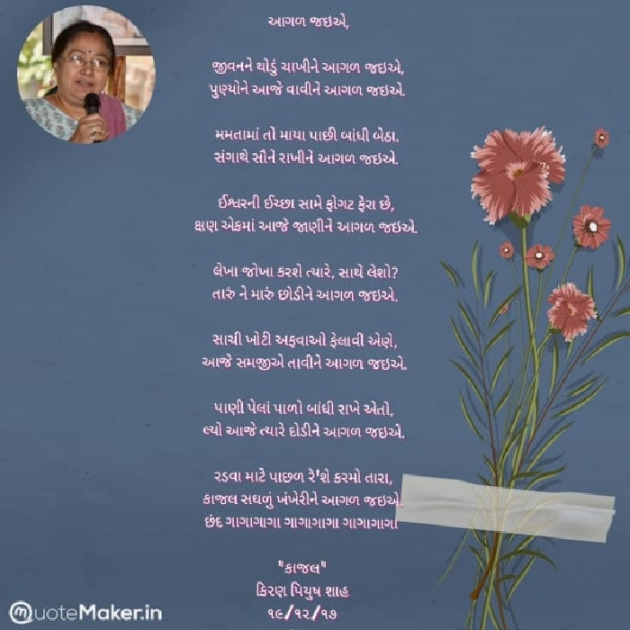 આગળ જઇએ,
જીવનને થોડું ચાખીને આગળ જઇએ,
પુણ્યોને આજે વાવીને આગળ જઇએ.
મમતામાં તો માયા પાછી બાંધી બેઠા.
સંગાથે સૌને રાખીને આગળ જઇએ.
ઈશ્વરની ઈચ્છા સામે ફોગટ ફેરા છે,
ક્ષણ એકમાં આજે જાણીને આગળ જઇએ.
લેખા જોખા કરશે ત્યારે, સાથે લેશો?
તારું ને મારું છોડીને આગળ જઇએ.
સાચી ખોટી અફવાઓ ફેલાવી એણે,
આજે સમજીએ તાવીને આગળ જઇએ.
પાણી પેલાં પાળો બાંધી રાખે એતો,
લ્યો આજે ત્યારે દોડીને આગળ જઇએ.
રડવા માટે પાછળ રે'શે કરમો તારા,
કાજલ સઘળું ખંખેરીને આગળ જઇએ.
છંદ ગાગાગાગા ગાગાગાગા ગાગાગાગા
"કાજલ"
કિરણ પિયુષ શાહ
૧૯/૧૨/૧૭
QuoteMaker.in